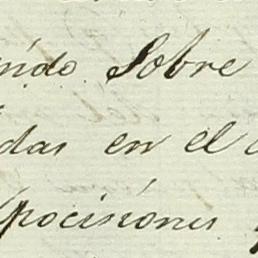 ndo Sobre
das en el
pocisiones